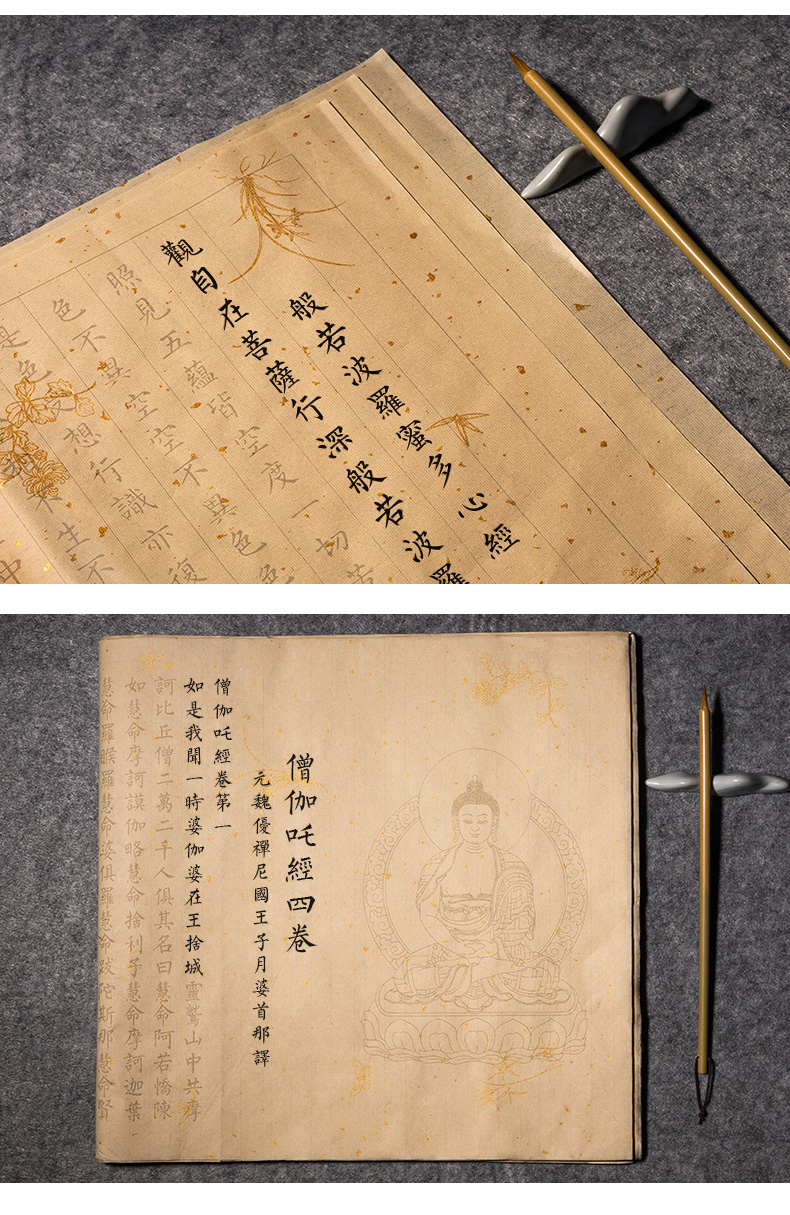 般若波羅蜜多心經
觀自在菩薩行深般若波羅
照見五蘊皆空度一切苦
色不異空空不異色色
是色受想行識亦復
相不生不
中
僧伽吒經四卷
元魏優禪尼國王子月婆首那譯
僧伽吒經卷第一
如是我聞一時婆伽婆在王捨城靈鷲山中共摩
訶比丘僧二萬二千人俱其名曰慧命阿若憍陳
如慧命摩訶謨伽略慧命捨利子慧命摩訶迦葉
慧命羅睺羅慧命婆俱羅慧命跋陀斯那慧命賢